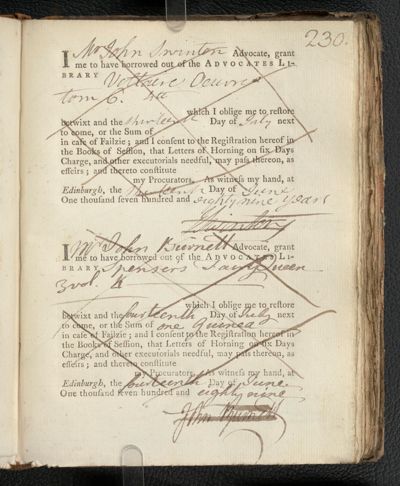 230.
I Mr John Swinton Advocate, grant
me to have borrowed out of the ADVOCATES LI-
BRARY Voltaire Oeuvres
tom 6.
which I oblige me to restore
betwixt and the thirteenth Day of July next
to come, or the Sum of
in case of Failzie; and I consent to the Registration hereof in
the Books of Session, that Letters of Horning on six Days
Charge, and other executorials needful, may pass thereon, as
effeirs; and thereto constitute
my Procurators. As witness my hand, at
Edinburgh, the Day of June
One thousand seven hundred and eighty nine years
JSwinton
I Mr John Burnett Advocate, grant
me to have borrowed out of the ADVOCATES LI-
BRARY Spensers Fairy Queen
3 vol. 4
which I oblige me to restore
betwixt and the fourteenth Day of July next
to come, or the Sum of one guinea
in case of Failzie; and I consent to the Registration hereof in
the Books of Session, that Letters of Horning on six Days
Charge, and other executorials needful, may pass thereon, as
effeirs; and thereto constitute
my Procurators. As witness my hand, at
Edinburgh, the fourteenth Day of June
One thousand seven hundred and eighty nine
John Burnett